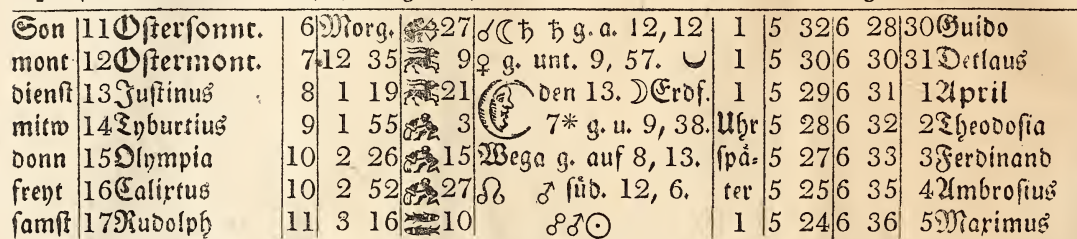 Son 11 Ostersonnt. 6 Morg. 27 ☌☾♄ ♄ g. a. 12, 12 1 5 32 6 28 30 Guido
mont 12 Ostermont. 7 12 35 9 ♀ g. unt. 9, 57. 1 5 30 6 30 31 Detlaus
dienst 13 Justinus 8 1 19 21 den 13. ☽ Erdf. 1 5 29 6 31 1 April
mitw 14 Tyburtius 9 1 55 3 7* g. u. 9, 38. Uhr 5 28 6 32 2 Theodosia
donn 15 Olympia 10 2 26 15 Wega g. auf 8, 13. spä- 5 27 6 33 3 Ferdinand
freyt 16 Calixtus 10 2 52 27 ☊ ♂ süd. 12, 6. ter 5 25 6 35 4 Ambrosius
samst 17 Rudolph 11 3 16 10 ☍♂☉ 1 5 24 6 36 5 Maximus